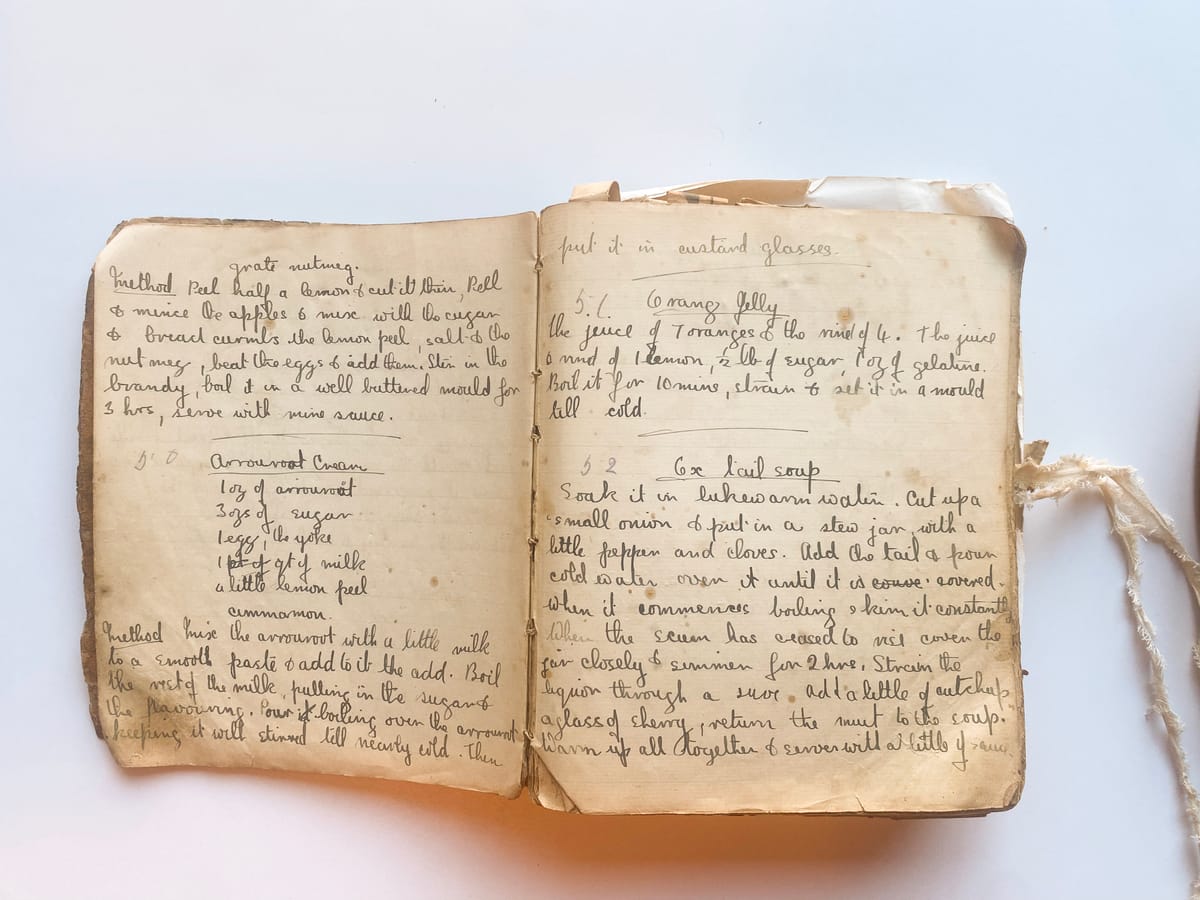 grate nutmeg.
Method Peel half a lemon & cut it thin, Pell
& mince the apples & mix with the sugar
& bread curmbs the lemon peel, salt & the
nutmeg, beat the eggs & add them. Stir in the
brandy, boil it in a well buttered mould for
3 hrs, serve with wine sauce.
50 Arrowroot Cream
1 oz of arrowroot
3 ozs of sugar
1 egg, the yoke
1 pt of qt of milk
a little lemon peel
cinnamon.
Method Mix the arrowroot with a little milk
to a smooth paste & add to it the add. Boil
the rest of the milk, putting in the sugar &
the flavouring. Pour it boiling over the arrowroot
keeping it well stirred till nearly cold. Then
put it in custard glasses.
51 Orang Jelly
The jeuce of 7 oranges & the rind of 4. The juice
& rind of 1 lemon, ½ lb of sugar, 1 oz of gelatine.
Boil it for 10 mins, strain & set it in a mould
till cold.
52 Ox tail soup
Soak it in lukewarm water. Cut up a
small onion & put in a stew jar, with a
little pepper and cloves. Add the tail & pour
cold water over it until it is couve covered.
When it commences boiling skim it constantly
When the scum has ceased to rise cover the
jar closely & simmer for 2 hrs. Strain the
liquor through a sieve. add a little of cutchup
a glass of sherry, return the meet to the soup.
Warm up all together & server with a little of